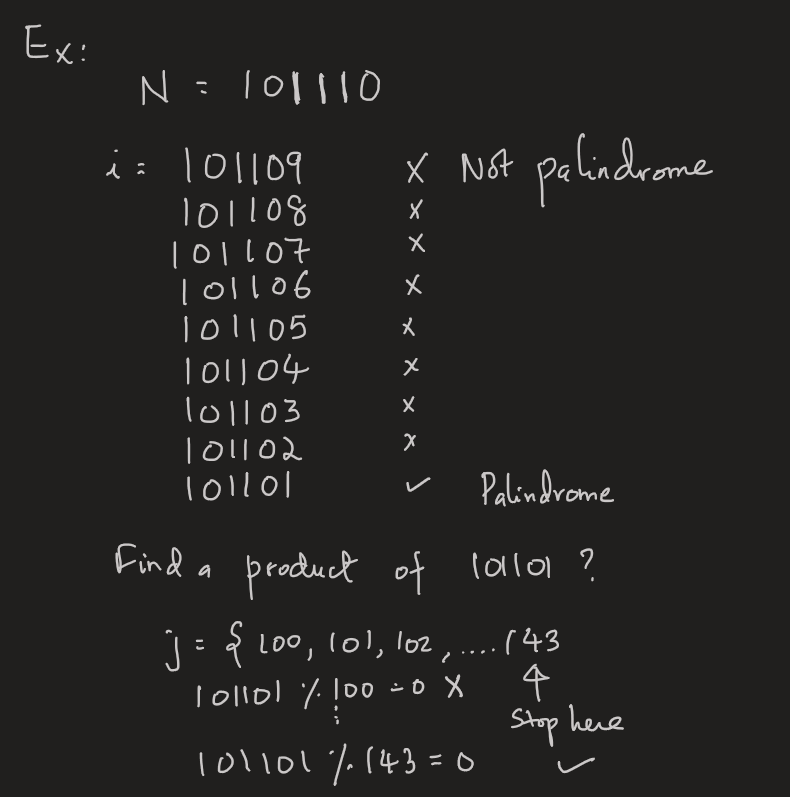 Ex:
N = 101110
i = 101109 x Not palindrome
101108 x
101107 x
101106 x
101105 x
101104 x
101103 x
101102 x
101101 ✓ Palindrome
Find a product of 101101 ?
j = { 100, 101, 102, .... 143
101101 % 100 = 0 X ↑
⋮ Stop here
101101 % 143 = 0 ✓